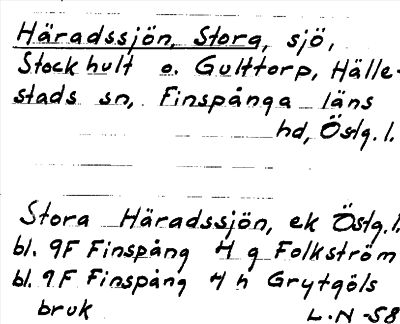 Häradssjön, Stora, sjö,
Stockhult o. Gulttorp, Hälle-
stads sn, Finspånga läns
hd, Östg. l.
Stora Häradssjön, ek Östg.l.
bl. 9F Finspång 4 g Folkström
bl. 9F Finspång 4 h Grytgöls
bruk
L.N -58